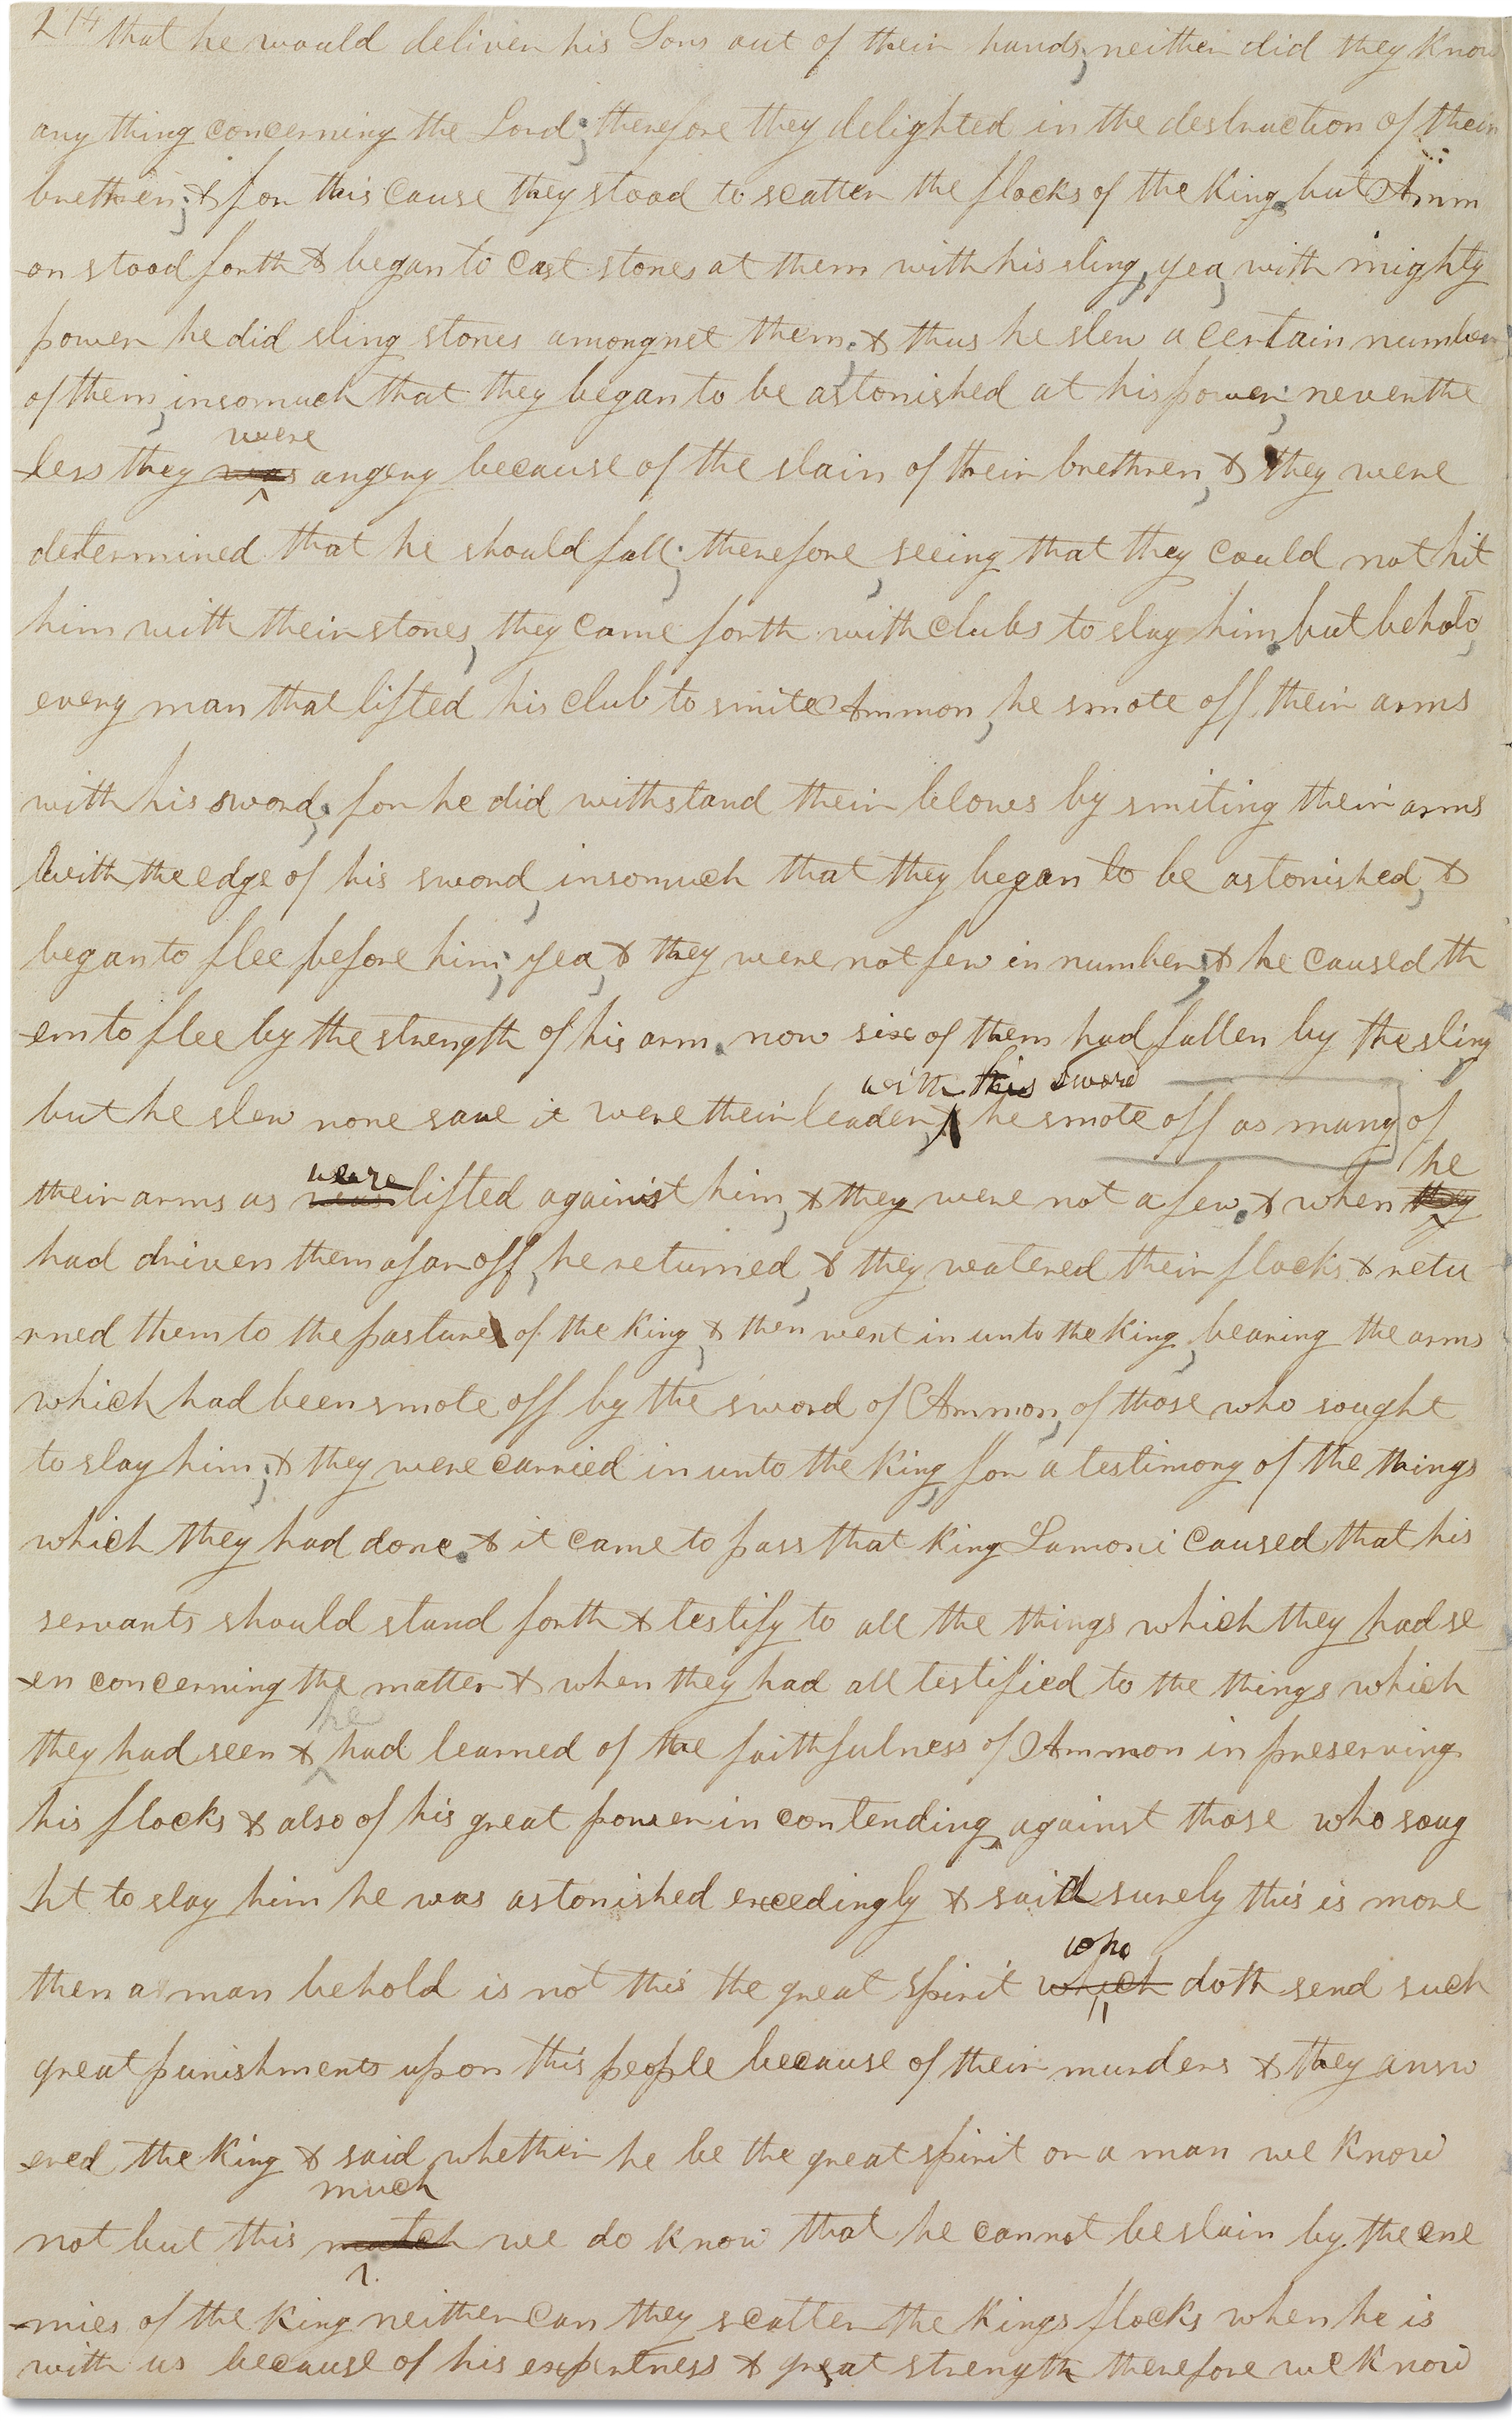 214 that he would deliver his Sons out of their hands; neither did they know
any thing concerning the Lord; therefore they delighted in the destruction of their
brethren; & for this cause they stood to scatter the flocks of the King. but Amm
-on stood forth & began to cast stones at them with his sling, yea, with mighty
power he did sling stones amongnst them; & thus he slew a certain number
of them, insomuch that they began to be astonished at his power; neverthe
were
-less they was angery because of the slain of their brethren, & they were
determined that he should fall; therefore, seeing that they could not hit
him with their stones, they came forth with clubs to slay him. but behold,
every man that lifted his club to smite Ammon, he smote off their arms
with his sword; for he did withstand their blows by smiting their arms
with the edge of his sword, insomuch that they began to be astonished, &
began to flee before him; yea, & they were not few in number; & he caused th
-em to flee by the strength of his arm. now six of them had fallen by the sling
with his sword
but he slew none save it were their leader, he smote off as many of
weare he
their arms as was lifted against him, & they were not a few. & when they
had driven them afar off, he returned, & they watered their flocks & retu
rned them to the pasture of the King, & then went in unto the King, bearing the arms
which had been smote off by the sword of Ammon, of those who sought
to slay him; & they were carried in unto the King, for a testimony of the things
which they had done. & it came to pass that King Lamoni caused that his
servants should stand forth & testify to all the things which they had se
-en concerning the matter & when they had all testified to the things which
he
they had seen & had learned of the faithfulness of Ammon in preserving
his flocks & also of his great power in contending against those who soug
ht to slay him he was astonished exceedingly & said surely this is more
who
then a man behold is not this the great spirit which doth send such
great punishments upon this people because of their murders & they answ
-ered the King & said whether he be the great spirit or a man we know
much
not but this match we do know that he cannot be slain by the ene
-mies of the King neither can they scatter the Kings flocks when he is
with us because of his expertness & great strength therefore we know